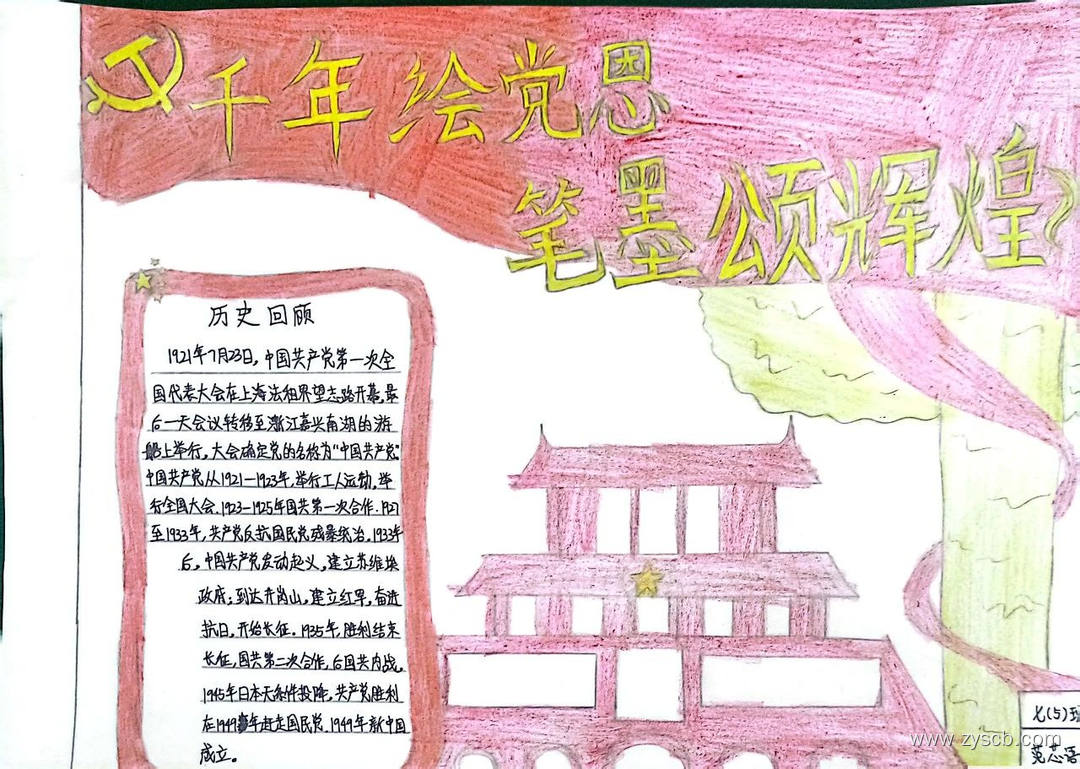 千年绘党恩
笔墨颂辉煌
历史回顾
1921年7月23日,中国共产党第一次全
国代表大会在上海法租界望志路开幕,最
后一天会议转移至浙江嘉兴南湖的游
船上举行,大会确定党的名称为"中国共产党"
中国共产党从1921—1923年,举行工人运动,举
行全国大会.1923—1925年国共第一次合作.1927
至1933年,共产党反抗国民党残暴统治,1933年
后,中国共产党发动起义,建立苏维埃
政府;到达井岗山,建立红军,奋进
抗日,开始长征.1935年,胜利结束
长征,国共第二次合作,后国共内战,
1945年日本无条件投降,共产党胜利
在1949年赶走国民党.1949年新中国
成立。
七(5)班
www.zyscb.com